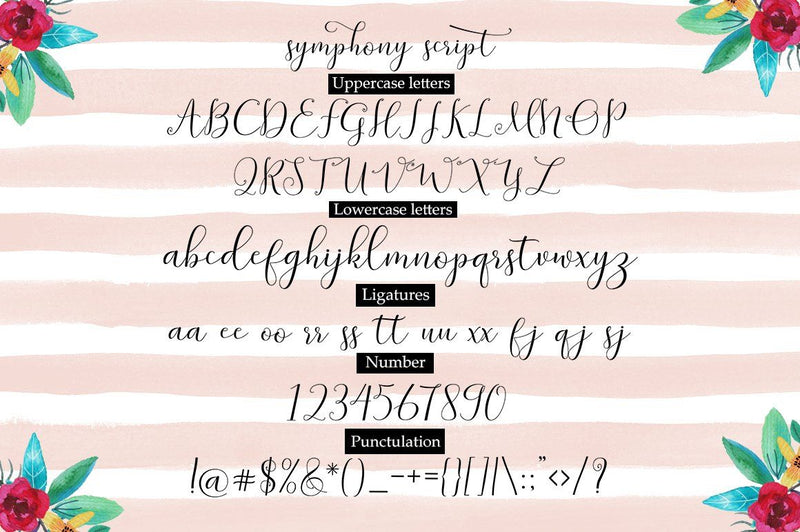 symphony script
Uppercase letters
ABCDEFGHIJKLMNOP
QRSTUVWXYZ
Lowercase letters
abcdefghijklmnopqrstuvwxyz
Ligatures
aa ee oo rr ss tt uu xx fj qj sj
Number
1234567890
Punctulation
!@#$%&*()_-+={}[]|\:;"<>/?